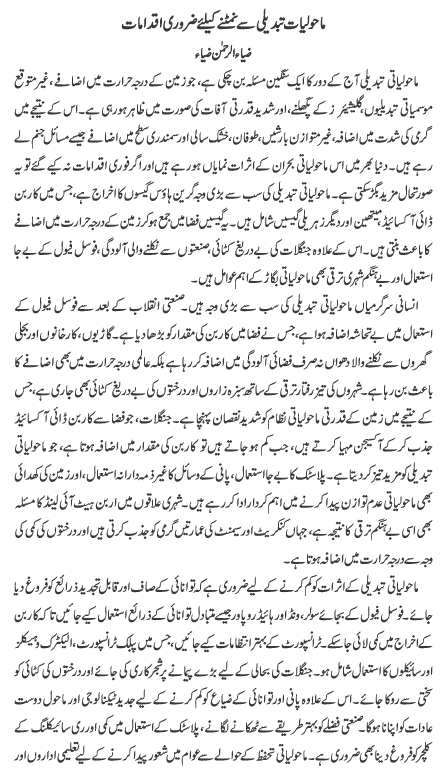 ماحولیات تبدیلی سے نمٹنے کیلئے ضروری اقدامات
ضیاء الرحمٰن ضیاء
ماحولیاتی تبدیلی آج کے دور کا ایک سنگین مسئلہ بن چکی ہے، جو زمین کے درجہ حرارت میں اضافے، غیر متوقع
موسمیاتی تبدیلیوں، گلیشیئرز کے پگھلنے، اور شدید قدرتی آفات کی صورت میں ظاہر ہو رہی ہے۔ اس کے نتیجے میں
گرمی کی شدت میں اضافہ، غیر متوازن بارشیں، طوفان، خشک سالی اور سمندری سطح میں اضافے جیسے مسائل جنم لے
رہے ہیں۔ دنیا بھر میں اس ماحولیاتی بحران کے اثرات نمایاں ہو رہے ہیں اور اگر فوری اقدامات نہ کیے گئے تو یہ
صورتحال مزید بگڑ سکتی ہے۔ ماحولیاتی تبدیلی کی سب سے بڑی وجہ گرین ہاؤس گیسوں کا اخراج ہے، جس میں کاربن
ڈائی آکسائیڈ، میتھین اور دیگر زہریلی گیسیں شامل ہیں۔ یہ گیسیں فضا میں جمع ہو کر زمین کے درجہ حرارت میں اضافے
کا باعث بنتی ہیں۔ اس کے علاوہ جنگلات کی بے دریغ کٹائی، صنعتوں سے نکلنے والی آلودگی، فوسل فیول کے بے جا
استعمال اور بے ہنگم شہری ترقی بھی ماحولیاتی بگاڑ کے اہم عوامل ہیں۔
انسانی سرگرمیاں ماحولیاتی تبدیلی کی سب سے بڑی وجہ ہیں۔ صنعتی انقلاب کے بعد سے فوسل فیول کے
استعمال میں بے تحاشہ اضافہ ہوا ہے، جس نے فضا میں کاربن کی مقدار کو بڑھا دیا ہے۔ گاڑیوں، کارخانوں اور بجلی
گھروں سے نکلنے والا دھواں نہ صرف فضائی آلودگی میں اضافہ کر رہا ہے بلکہ عالمی درجہ حرارت میں بھی اضافے کا
باعث بن رہا ہے۔ شہروں کی تیز رفتار ترقی کے ساتھ سبزہ زاروں اور درختوں کی بے دریغ کٹائی بھی جاری ہے، جس
کے نتیجے میں زمین کے قدرتی ماحولیاتی نظام کو شدید نقصان پہنچا ہے۔ جنگلات، جو فضا سے کاربن ڈائی آکسائیڈ
جذب کر کے آکسیجن مہیا کرتے ہیں، جب کم ہو جاتے ہیں تو کاربن کی مقدار میں اضافہ ہوتا ہے، جو ماحولیاتی
تبدیلی کو مزید تیز کر دیتا ہے۔ پلاسٹک کا بے جا استعمال، پانی کے وسائل کا غیر ذمہ دارانہ استعمال، اور زمین کی کھدائی
بھی ماحولیاتی عدم توازن پیدا کرنے میں اہم کردار ادا کر رہے ہیں۔ شہری علاقوں میں اربن ہیٹ آئی لینڈ کا مسئلہ
بھی اسی بے ہنگم ترقی کا نتیجہ ہے، جہاں کنکریٹ اور سیمنٹ کی عمارتیں گرمی کو جذب کرتی ہیں اور درختوں کی کمی کی
وجہ سے درجہ حرارت میں اضافہ ہوتا ہے۔
ماحولیاتی تبدیلی کے اثرات کو کم کرنے کے لیے ضروری ہے کہ توانائی کے صاف اور قابل تجدید ذرائع کو فروغ دیا
جائے۔ فوسل فیول کے بجائے سولر، ونڈ اور ہائیڈرو پاور جیسے متبادل توانائی کے ذرائع استعمال کیے جائیں تاکہ کاربن
کے اخراج میں کمی لائی جا سکے۔ ٹرانسپورٹ کے بہتر انتظامات کیے جائیں، جس میں پبلک ٹرانسپورٹ، الیکٹرک وہیکلز
اور سائیکلوں کا استعمال شامل ہو۔ جنگلات کی بحالی کے لیے بڑے پیمانے پر شجر کاری کی جائے اور درختوں کی کٹائی کو
سختی سے روکا جائے۔ اس کے علاوہ پانی اور توانائی کے ضیاع کو کم کرنے کے لیے جدید ٹیکنالوجی اور ماحول دوست
عادات کو اپنانا ہوگا۔ صنعتی فضلے کو بہتر طریقے سے ٹھکانے لگانے، پلاسٹک کے استعمال میں کمی اور ری سائیکلنگ کے
کلچر کو فروغ دینا بھی ضروری ہے۔ ماحولیاتی تحفظ کے حوالے سے عوام میں شعور پیدا کرنے کے لیے تعلیمی اداروں اور